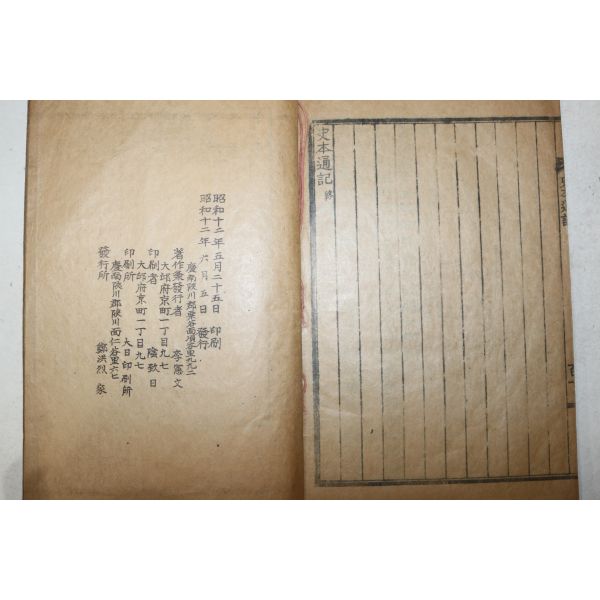 史本通記 終
昭和十二年五月二十五日 印刷
昭和十二年六月五日 發行
慶南陜川郡栗谷面項谷里九九二
著作兼發行者 李憲文
大邱府京町一丁目九七
印刷者 陰致日
大邱府京町一丁目九七
印刷所 大日印刷所
慶南陜川郡陜川面仁谷里六七
發行所 鄭洪烈家